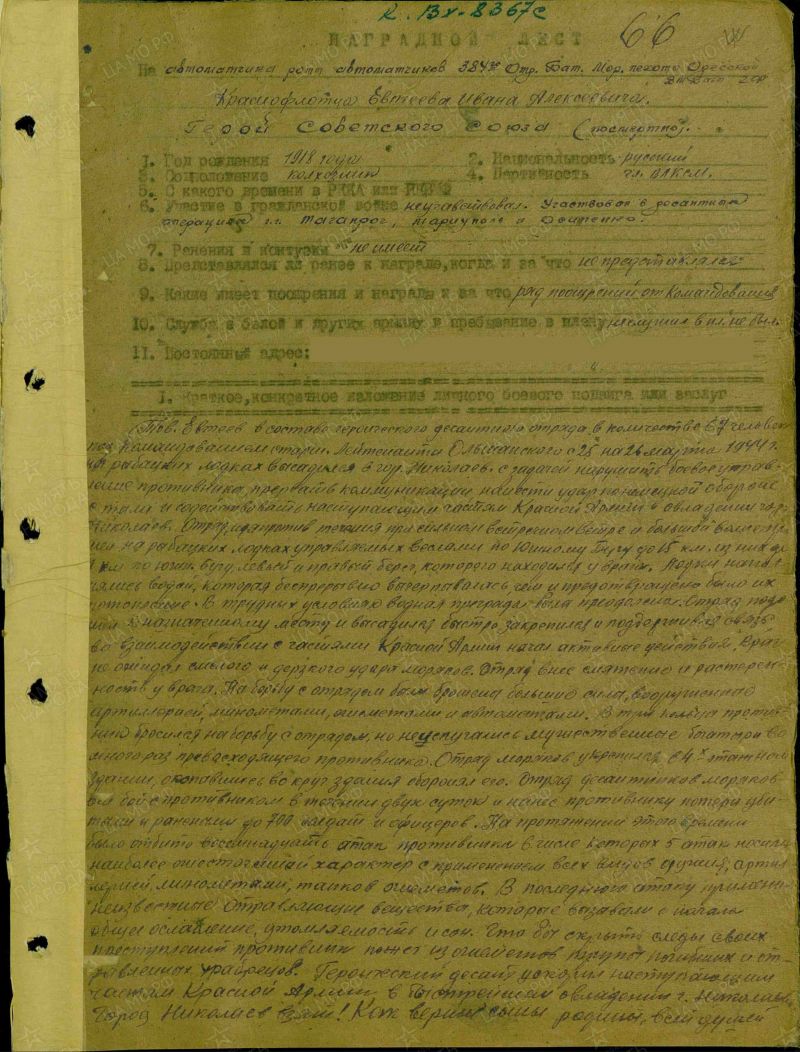 К. Вх-8367с
66
НАГРАДНОЙ ЛИСТ
На автоматчика роты автоматчиков 384го Отд. Бат. Мор. пехоты Одесской
Краснофлотца Евтеева Ивана Алексеевича.
Герой Советского Союза (посмертно).
1. Год рождения 1918 года 2. Национальность русский
3. Соцположение колхозник 4. Партийность чл. ВЛКСМ.
5. С какого времени в РККА или
6. Участие в гражданской войне не участвовал. Участвовал в десантных
операциях г.г. Таганрог, Мариуполь и Осипенко.
7. Ранения и контузии не имеет
8. Представлялся ли ранее к награде, когда и за что не представлялся
9. Какие имеет поощрения и награды и за что ряд поощрений от командования
10. Служба в белой и других армиях и пребывание в плену не служил в пл. не был.
11. Постоянный адрес:
I. Краткое, конкретное изложение личного боевого подвига или заслуг
Тов. Евтеев в составе героического десантного отряда, в количестве 67 человек
под командованием старш. лейтенанта Ольшанского с 25 на 26 марта 1944 г.
на рабацких лодках высадился в гор. Николаев с задачей нарушить боевое управ-
ление противника, прервать коммуникации нанести удар по немецкой обороне
с тыла и содействовать наступающим частям Красной Армии в овладении гор.
Николаев. Отряд идя против течения при сильном встречном ветре и большой волне
на рабацких лодках управляемых веслами по Южному Бугу до 15 км. из них
км по Южн. Бугу левый и правый берег, которого находился у врага. Лодки напол-
нялись водой, которая беспрерывно вычерпывалась чем и предотвращено было их
потопление. В трудных условиях водная преграда была преодолена. Отряд подо-
шел к назначенному месту и высадился быстро закрепился и поддерживая связь
во взаимодействии с частями Красной Армии начал активные действия. Враг
не ожидал смелого и дерзкого удара моряков. Отряд внес смятение и растерян-
ность у врага. На борьбу с отрядом была брошена большая сила, вооруженная
артиллерией, минометами, огнеметами и автоматами. В три кольца против-
ник бросился на борьбу с отрядом, но не испугались мужественные богатыри во
много раз превосходящего противника. Отряд моряков укрепился в 4х этажном
здании, окопавшись вокруг здания оборонял его. Отряд десантников моряков
вел бой с противником в течении двух суток и нанес противнику потери уби-
тыми и ранеными до 700 солдат и офицеров. На протяжении этого времени
было отбито восемнадцать атак противником в числе которых 5 атак носили
наиболее ожесточенный характер с применением всех видов оружия, артил-
лерией, минометами, танков огнеметов. В последнюю атаку применил
неизвестные отравляющие вещества, которые вызывали с начала
общее ослабление, утомляемость и сон. Что бы скрыть следы своих
преступлений противник пожег из огнеметов трупы погибших и от-
равленных храбрецов. Героический десант ускорил наступающим
частям Красной Армии в быстрейшем овладении г. Николаев
Город Николаев взят! Как верные сыны родины, всей душей